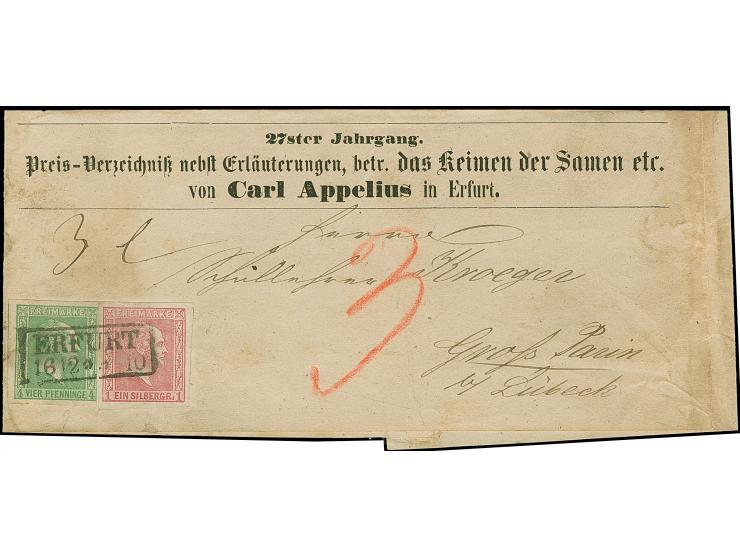 27ster Jahrgang.
Preis-Verzeichniß nebst Erläuterungen, betr. das Keimen der Samen etc.
von Carl Appelius in Erfurt.
Herrn
Schullehrer Kroeger
3
Groß Parin
b/ Lübeck
FREIMARKE
4 VIER PFENNINGE 4
FREIMARKE
1 EIN SILBERGR. 1
ERFURT
16 12
10